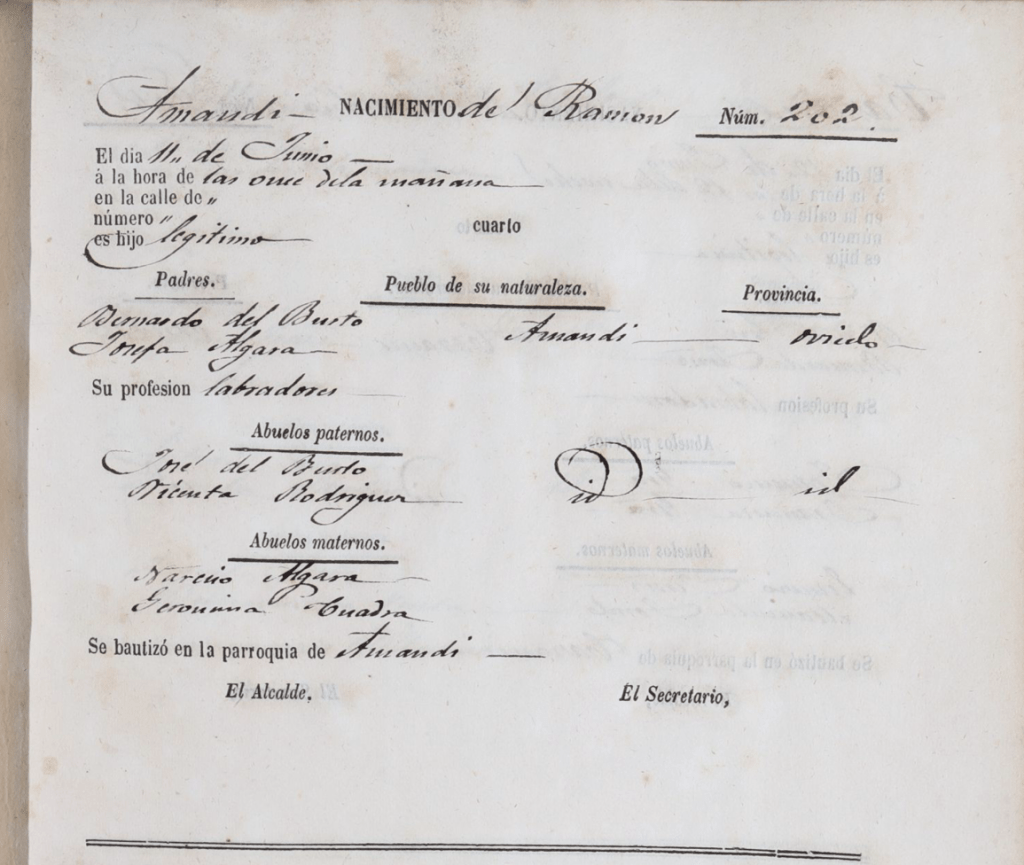 Amandi — NACIMIENTO de Ramon Núm. 202.
El dia 11,, de Junio —
à la hora de las once dela mañana
en la calle de „
número „ cuarto
es hijo legitimo
Padres. Pueblo de su naturaleza. Provincia.
Bernardo del Busto
Josefa Algara — Amandi — oviedo
Su profesion labradores
Abuelos paternos.
José del Busto
Vicenta Rodriguez — id — id
Abuelos maternos.
Narciso Algara
Geronima Cuadra
Se bautizó en la parroquia de Amandi —
El Alcalde, El Secretario,